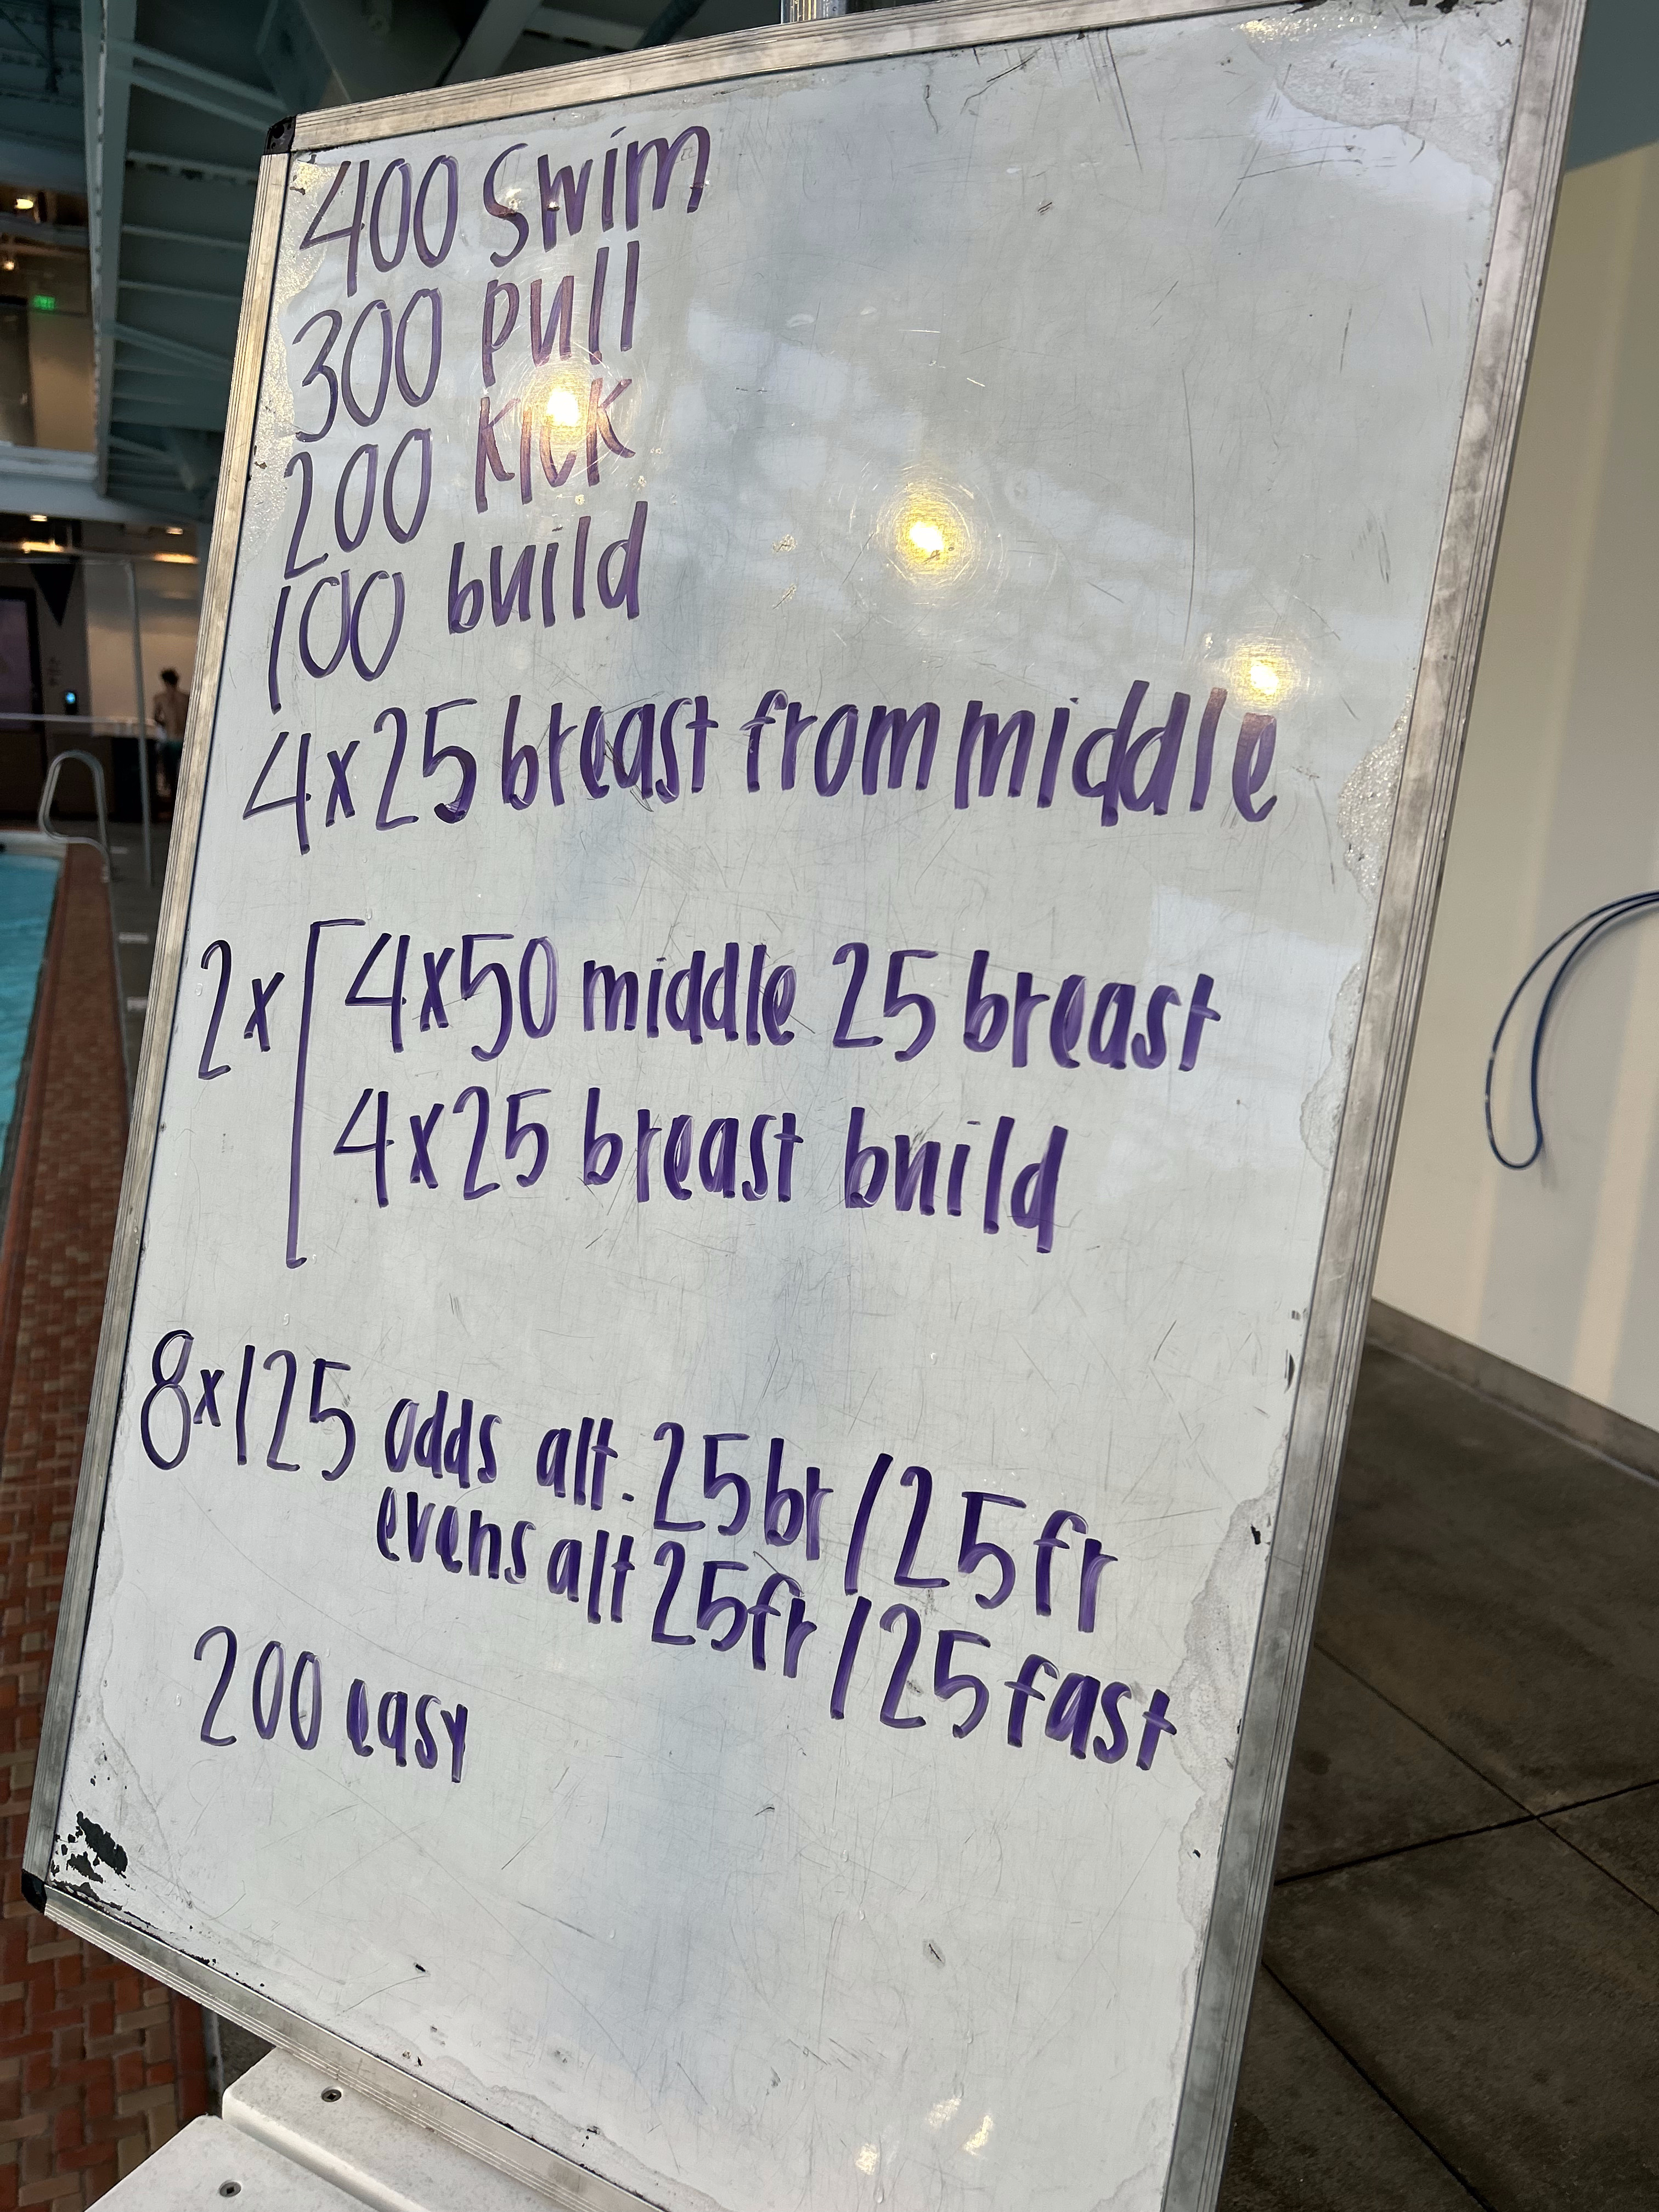 400 Swim
300 pull
200 kick
100 build
4x25 breast from middle
2x 4x50 middle 25 breast
4x25 breast build
8x125 odds alt. 25br/25fr
evens alt 25fr/25fast
200 easy